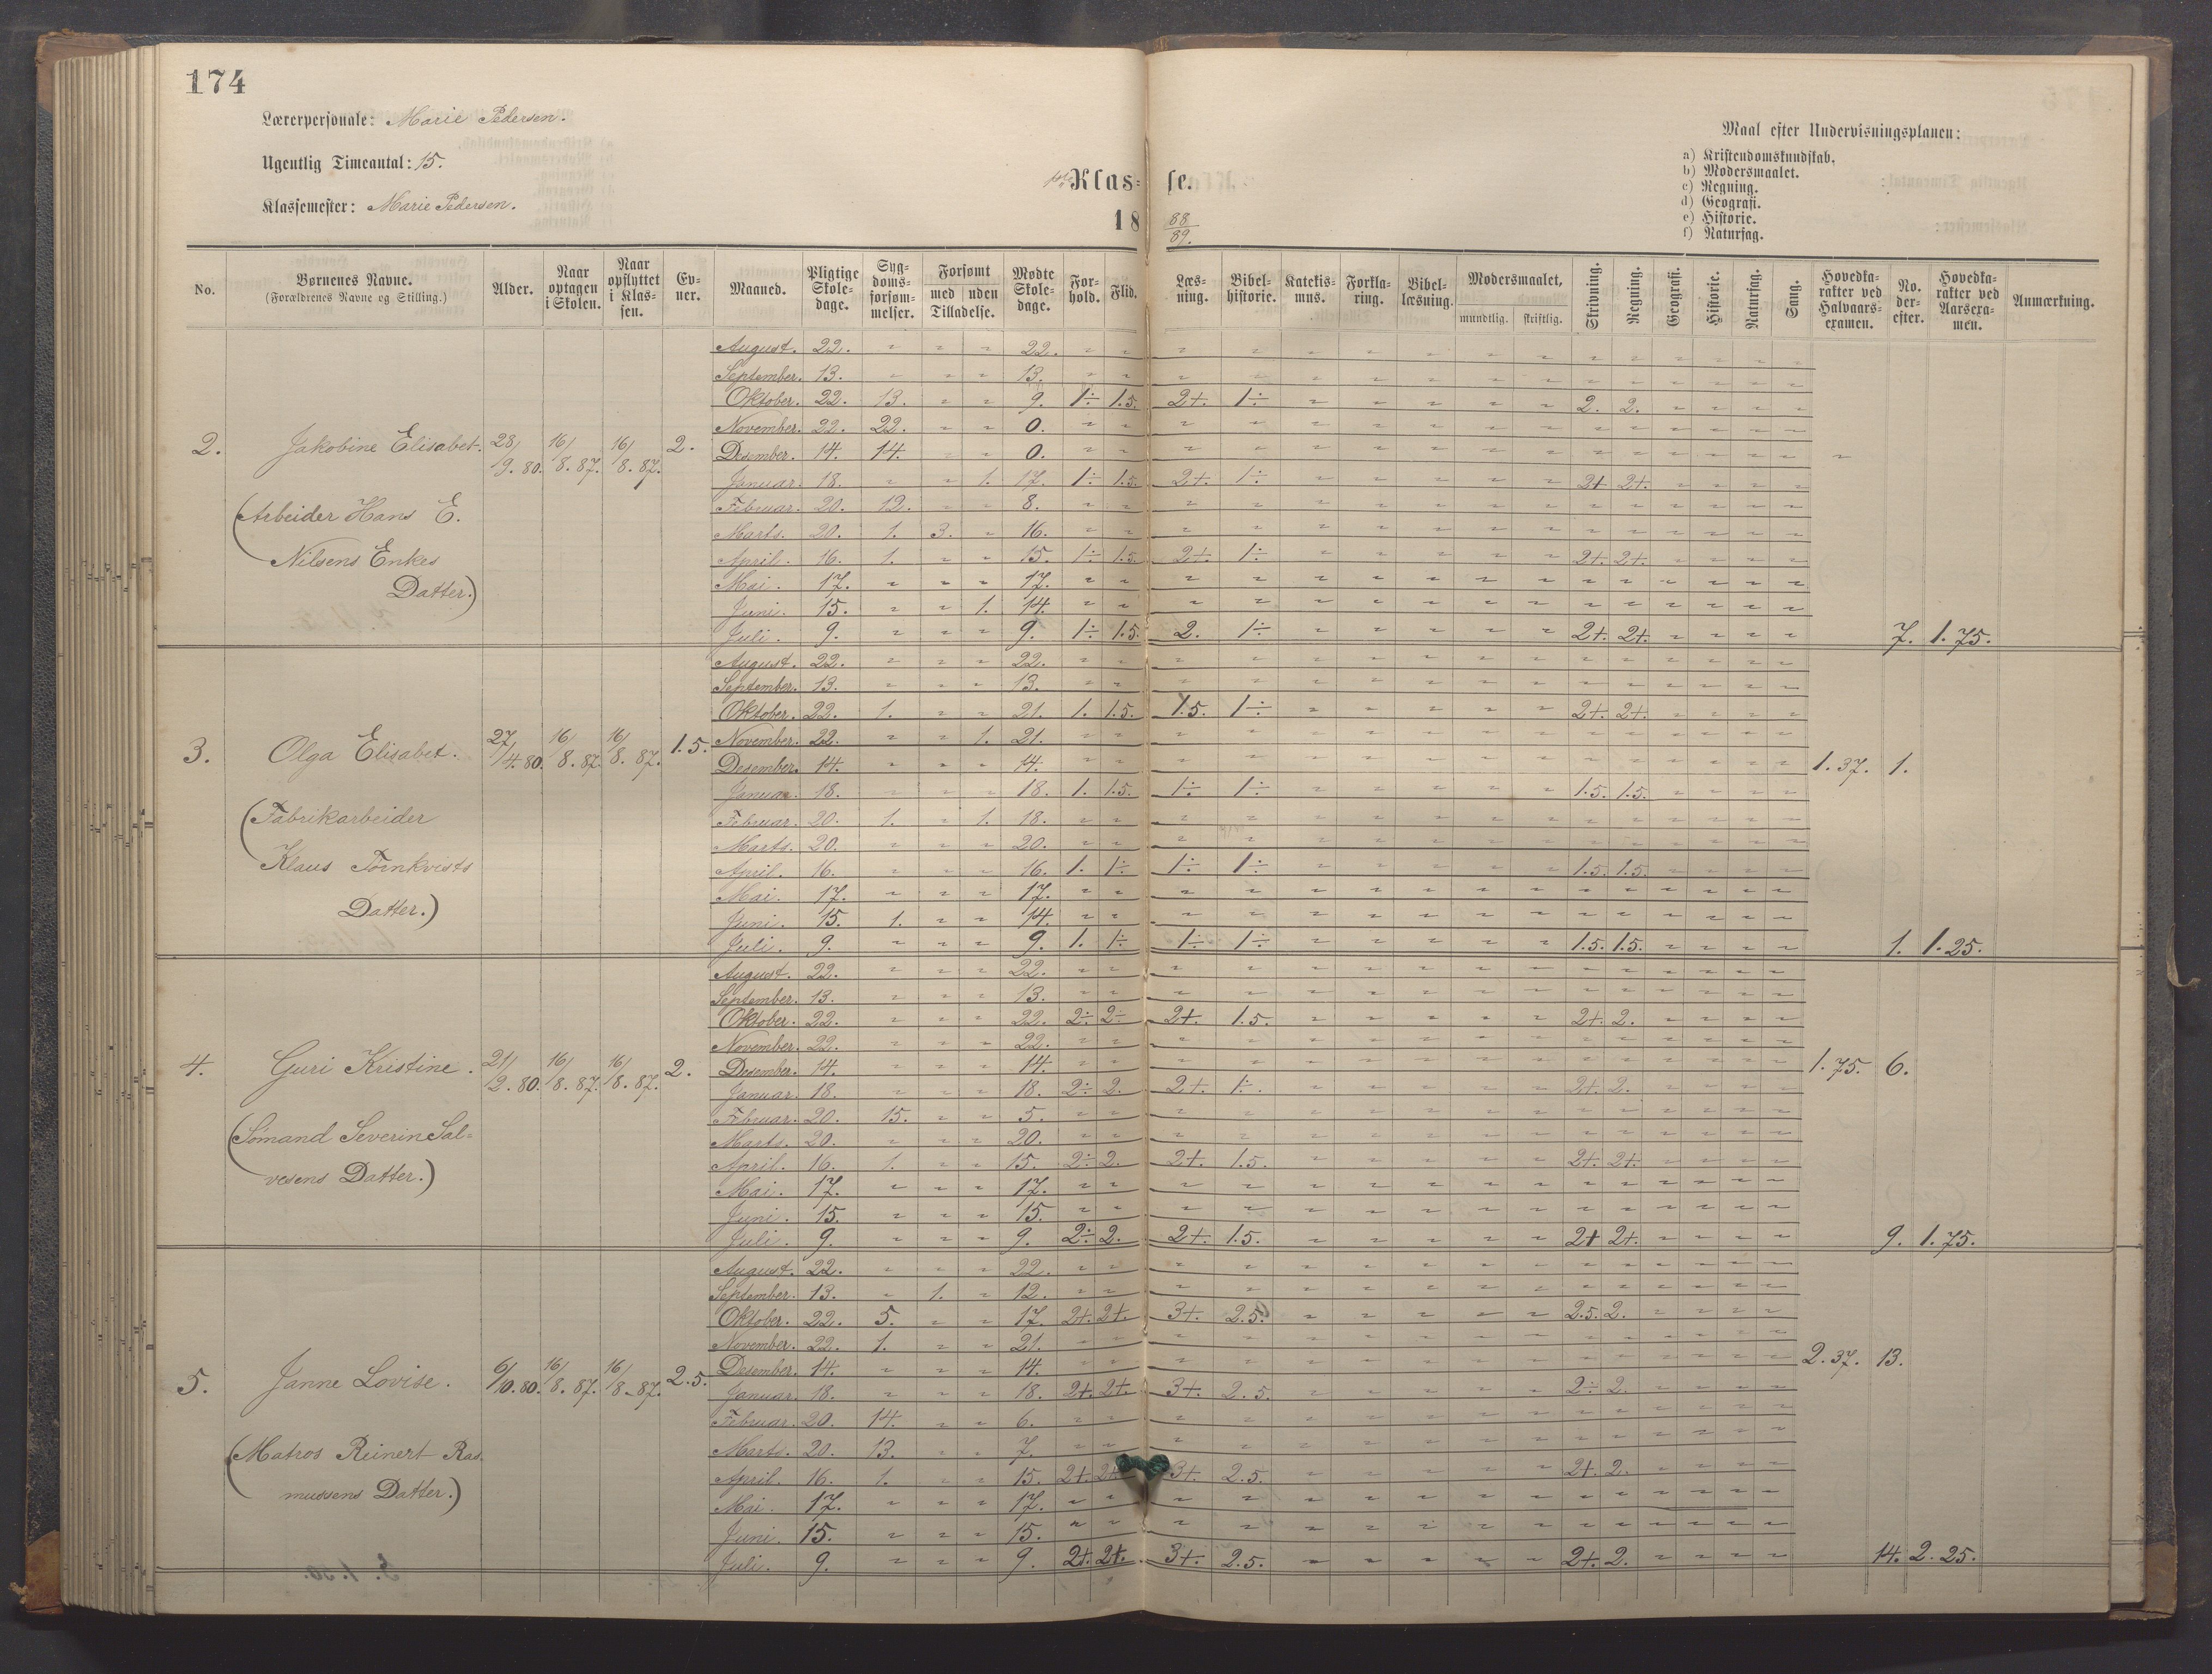 174
Lærerpersonale: Marie Pedersen.
Ugentlig Timeantal: 15.
Klassemester: Marie Pedersen.
Klas= se.
18 88/89.
Maal efter Undervisningsplanen:
a) Kristendomskundskab.
b) Modersmaalet.
c) Regning.
d) Geografi.
e) Historie.
f) Naturfag.
No. | Børnenes Navne. (Forældrenes Navne og Stilling.) | Alder. | Naar optagen i Skolen. | Naar opflyttet i Klas-sen. | Ev-ner. | Maaned. | Pligtige Skole-dage. | Syg-doms-forsøm-melser. | Forsømt med uden Tilladelse. | Mødte Skole-dage. | For-hold. | Flid. | Læs-ning. | Bibel-historie. | Katekis-mus. | Forkla-ring. | Bibel-læsning. | Modersmaalet, mundtlig. skriftlig. | Skrivning. | Regning. | Geografi. | Historie. | Naturfag. | Sang. | Hovedka-rakter ved Halvaars-examen. | No. der-efter. | Hovedka-rakter ved Aarsexa-men. | Anmærkning.
2. Jakobine Elisabet. 28/9. 80. 16/8. 87. 16/8. 87. 2.
(Arbeider Hans E.
Nilsens Enkes
Datter.)
August. 22. " " " 22. " " " " " " " " " " " " " " "
September. 13. " " " 13. " " " " " " " " " " " " " " "
Oktober. 22. 13. " " 9. 1÷ 1.5. 2+. 1÷ " " " " " 2. 2. " " " "
November. 22. 22. " " 0. " " " " " " " " " " " " " " "
Desember. 14. 14. " " 0. " " " " " " " " " " " " " " " "
Januar. 18. " " 1. 17. 1÷ 1.5. 2+. 1÷ " " " " " 2+ 2+. " " " "
Februar. 20. 12. " " 8. " " " " " " " " " " " " " " "
Marts. 20. 1. 3. " 16. " " " " " " " " " " " " " " "
April. 16. 1. " " 15. 1÷ 1.5. 2+. 1÷ " " " " " 2+. 2+. " " " "
Mai. 17. " " " 17. " " " " " " " " " " " " " " "
Juni. 15. " " 1. 14. " " " " " " " " " " " " " " "
Juli. 9. " " " 9. 1÷ 1.5. 2. 1÷ " " " " " 2+. 2+. " " " " 7. 1.75.
3. Olga Elisabet. 27/4. 80. 16/8. 87. 16/8. 87. 1.5.
(Fabrikarbeider
Klaus Törnkvists
Datter.)
August. 22. " " " 22. " " " " " " " " " " " " " " "
September. 13. " " " 13. " " " " " " " " " " " " " " "
Oktober. 22. 1. " " 21. 1. 1.5. 1.5. 1÷ " " " " " 2+. 2+. " " " "
November. 22. " " 1. 21. " " " " " " " " " " " " " " "
Desember. 14. " " " 14. " " " " " " " " " " " " " " " 1.37. 1.
Januar. 18. " " " 18. 1. 1.5. 1÷ 1÷ " " " " " 1.5. 1.5. " " " "
Februar. 20. 1. " 1. 18. " " " " " " " " " " " " " " "
Marts. 20. " " " 20. " " " " " " " " " " " " " " "
April. 16. " " " 16. 1. 1÷ 1÷ 1÷ " " " " " 1.5. 1.5. " " " "
Mai. 17. " " " 17. " " " " " " " " " " " " " " "
Juni. 15. 1. " " 14. " " " " " " " " " " " " " " "
Juli. 9. " " " 9. 1. 1÷ 1÷ 1÷ " " " " " 1.5. 1.5. " " " " 1. 1.25.
4. Guri Kristine. 21/2. 80. 16/8. 87. 16/8. 87. 2.
(Sömand Severin Sal=
vesens Datter.)
August. 22. " " " 22. " " " " " " " " " " " " " " "
September. 13. " " " 13. " " " " " " " " " " " " " " "
Oktober. 22. " " " 22. 2÷ 2÷ 2+. 1.5. " " " " " 2+. 2. " " " "
November. 22. " " " 22. " " " " " " " " " " " " " " "
Desember. 14. " " " 14. " " " " " " " " " " " " " " " 1.75. 6.
Januar. 18. " " " 18. 2÷ 2. 2+. 1÷ " " " " " 2+. 2. " " " "
Februar. 20. 15. " " 5. " " " " " " " " " " " " " " "
Marts. 20. " " " 20. " " " " " " " " " " " " " " "
April. 16. 1. " " 15. 2÷ 2. 2+. 1.5. " " " " " 2+. 2+. " " " "
Mai. 17. " " " 17. " " " " " " " " " " " " " " "
Juni. 15. " " " 15. " " " " " " " " " " " " " " "
Juli. 9. " " " 9. 2÷ 2. 2+. 1.5. " " " " " 2+ 2+. " " " " 9. 1.75.
5. Janne Lovise. 6/10. 80. 16/8. 87. 16/8. 87. 2.5.
(Matros Reinert Ras=
mussens Datter.)
August. 22. " " " 22. " " " " " " " " " " " " " " "
September. 13. " 1. " 12. " " " " " " " " " " " " " " "
Oktober. 22. 5. " " 17. 2+. 2+. 3+. 2.5. " " " " " 2.5. 2. " " " "
November. 22. 1. " " 21. " " " " " " " " " " " " " " "
Desember. 14. " " " 14. " " " " " " " " " " " " " " " 2.37. 13.
Januar. 18. " " " 18. 2+. 2+. 3+. 2.5. " " " " " 2÷ 2. " " " "
Februar. 20. 14. " " 6. " " " " " " " " " " " " " " "
Marts. 20. 13. " " 7. " " " " " " " " " " " " " " "
April. 16. 1. " " 15. 2+. 2+ 3+. 2.5. " " " " " 2+. 2. " " " "
Mai. 17. " " " 17. " " " " " " " " " " " " " " "
Juni. 15. " " " 15. " " " " " " " " " " " " " " "
Juli. 9. " " " 9. 2+. 2+. 3+. 2.5. " " " " " 2+. 2. " " " " 14. 2.25.